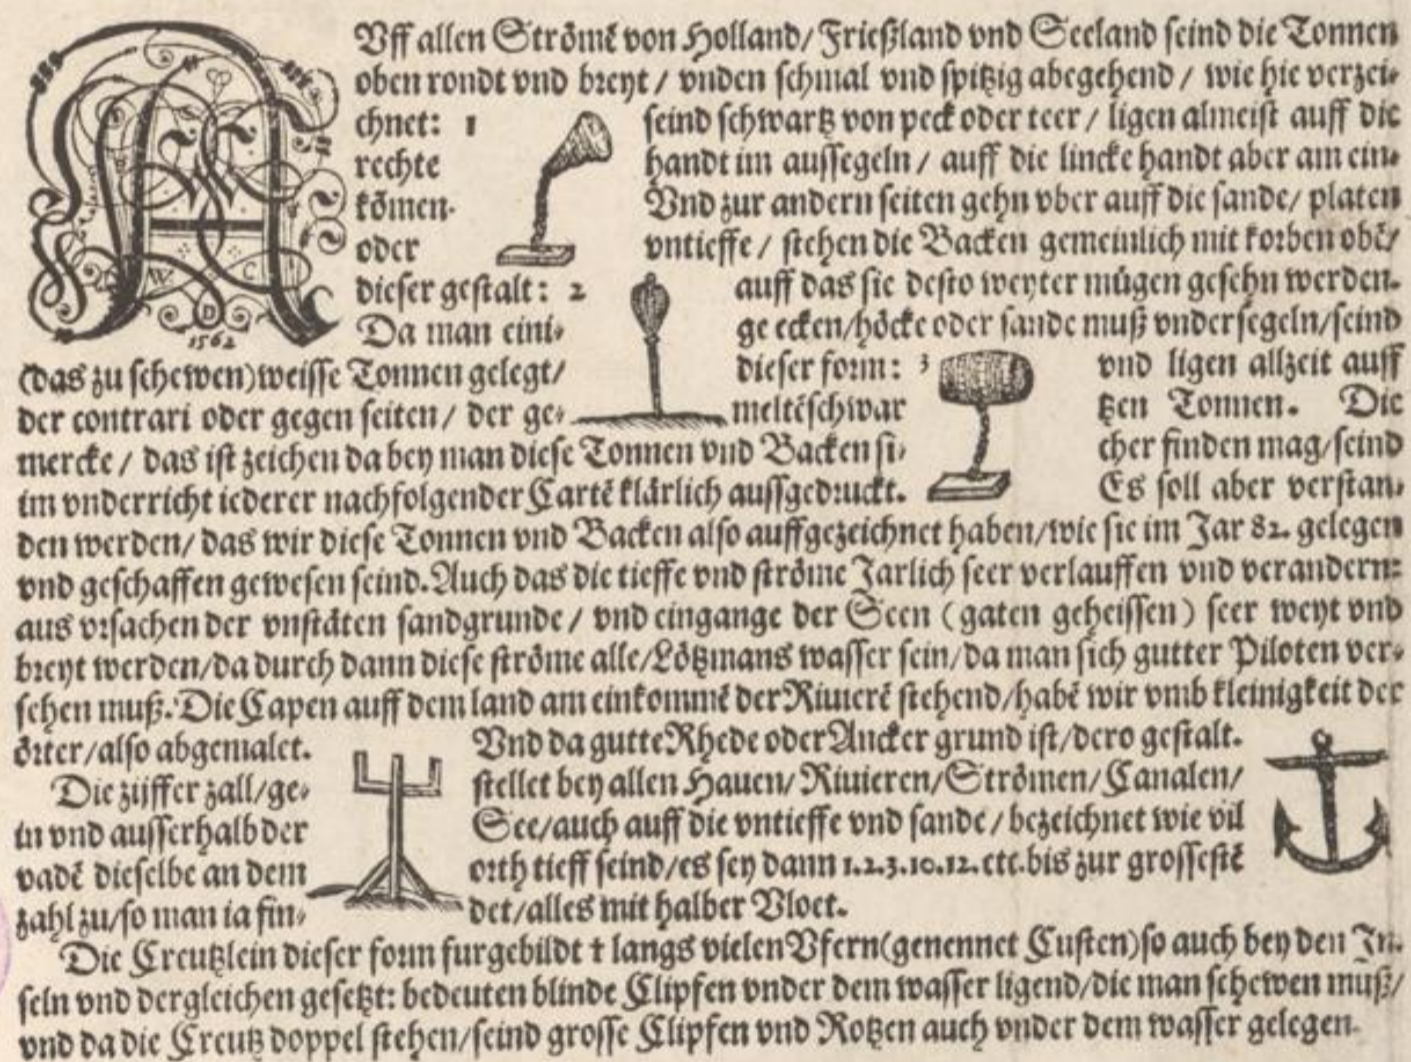 AUff allen Strömē von Holland/ Frießland vnd Seeland seind die Tonnen
oben rondt vnd breyt / vnden schmal vnd spitzig abegehend / wie hie verzei-
chnet: 1 seind schwartz von peck oder teer / ligen almeist auff die
rechte handt im aussegeln / auff die lincke handt aber am ein-
kōmen. Vnd zur andern seiten gehn vber auff die sande/ platen
oder vntieffe / stehen die Backen gemeinlich mit korben obē/
dieser gestalt: 2 auff das sie desto weyter mügen gesehn werden.
Da man eini- ge ecken/höcke oder sande muß vndersegeln/seind
(das zu schewen)weisse Tonnen gelegt/ dieser form: 3 vnd ligen allzeit auff
der contrari oder gegen seiten/ der ge- meltēschwar tzen Tonnen. Die
mercke / das ist zeichen da bey man diese Tonnen vnd Backen si- cher finden mag/seind
im vnderricht iederer nachfolgender Cartē klärlich aussgedruckt. Es soll aber verstan-
den werden/ das wir diese Tonnen vnd Backen also auffgezeichnet haben/wie sie im Jar 82. gelegen
vnd geschaffen gewesen seind. Auch das die tieffe vnd ströme Jarlich seer verlauffen vnd verandern:
aus vrsachen der vnstäten sandgrunde / vnd eingange der Seen (gaten geheissen) seer weyt vnd
breyt werden/da durch dann diese ströme alle/Lötzmans wasser sein/da man sich gutter Piloten ver-
sehen muß. Die Capen auff dem land am einkommē der Riuierē stehend/habē wir vmb kleinigkeit der
örter/also abgemalet. Vnd da gutte Rhede oder Ancker grund ist/dero gestalt.
Die zijffer zall/ge- stellet bey allen Hauen/ Riuieren/Strömen/Canalen/
in vnd ausserhalb der See/auch auff die vntieffe vnd sande/bezeichnet wie vil
vadē dieselbe an dem orth tieff seind/es sey dann 1.2.3.10.12.etc.bis zur grossestē
zahl zu/so man ia fin- det/alles mit halber Vloet.
Die Creutzlein dieser form furgebildt † langs vielen Vfern(genennet Custen)so auch bey den In-
seln vnd dergleichen gesetzt: bedeuten blinde Clipfen vnder dem wasser ligend/die man schewen muß/
vnd da die Creutz doppel stehen/seind grosse Clipfen vnd Rotzen auch vnder dem wasser gelegen.
W C
D
1562